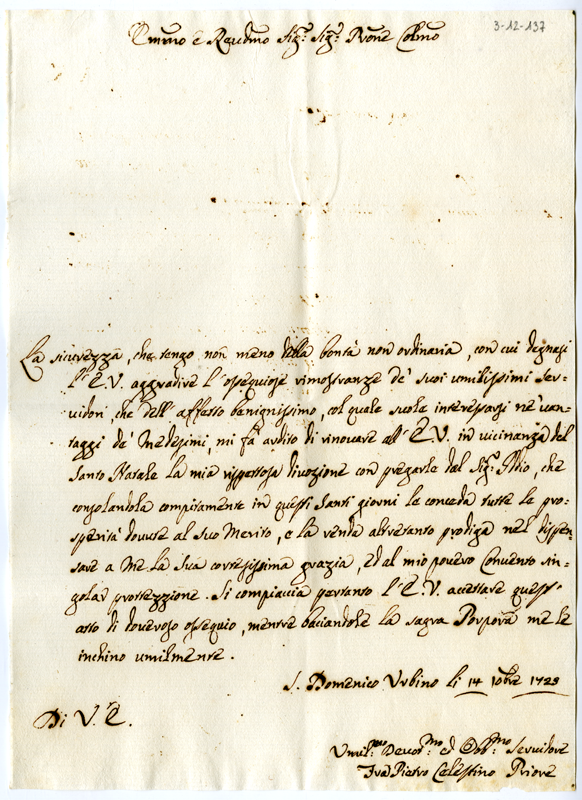 3-12-137
Emin̄o e Revd̄mo Sig.r Sig.r Pron̄e Colm̄o
La sicurezza, che tengo non meno della bontà non ordinaria, con cui degnasi
l'E.V. aggradire l'ossequiose rimostranze de' suoi umilissimi Ser-
vidori, che dell'affetto benignissimo, col quale suole interessarsi ne' van-
taggi de' Medesimi, mi fà ardito di rinovare all'E.V. in vicinanza del
Santo Natale la mia rispettosa divozione con pregarle dal Sig.r Iddio, che
consolandola compitamente in questi Santi giorni le conceda tutte le pro-
sperità dovute al Suo Merito, e la renda altretanto prodiga nel dispen-
sare a Me la Sua cortesissima grazia, ed al mio povero Convento sin-
golar protezzione. Si compiaccia pertanto l'E.V. accettare quest'
atto di doveroso ossequio, mentre baciandole la sagra Porpora me le
inchino umilmente.
S. Domenico Urbino li 14 10bre 1728
Di V.E.
Umil.mo Devot.mo ed Obb.mo Servidore
Fra Pietro Celestino Priore